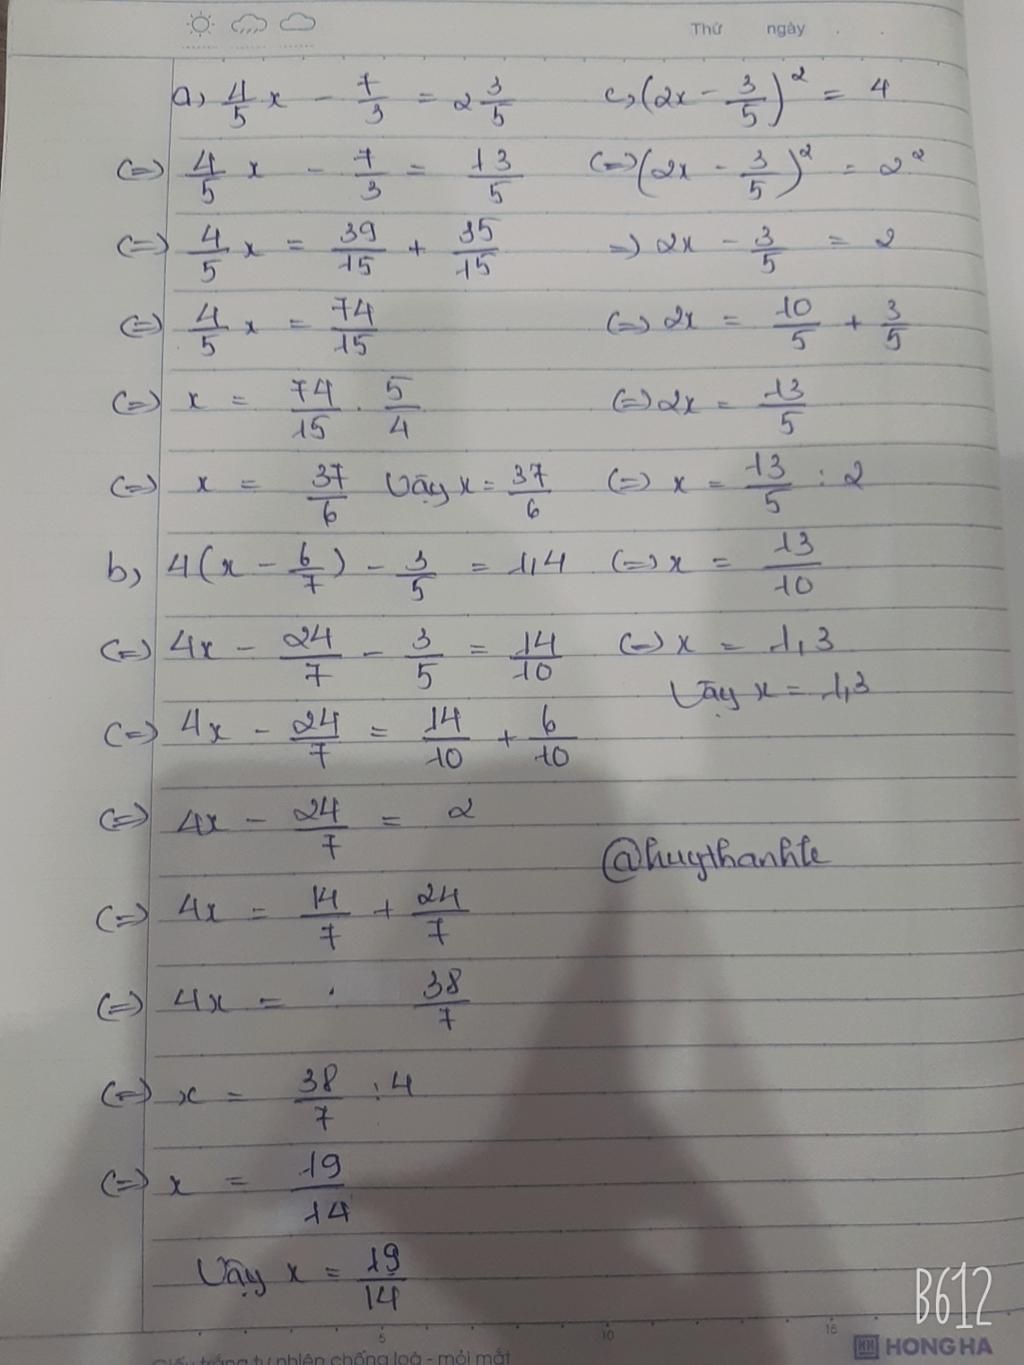 Thứ ngày
a, 4/5 x - 7/3 = 2 3/5
(=) 4/5 x - 7/3 = 13/5
(=) 4/5 x = 39/15 + 35/15
(=) 4/5 x = 74/15
(=) x = 74/15 . 5/4
(=) x = 37/6 Vậy x = 37/6
b, 4(x - 6/7) - 3/5 = 1,4
(=) 4x - 24/7 - 3/5 = 14/10
(=) 4x - 24/7 = 14/10 + 6/10
(=) 4x - 24/7 = 2
(=) 4x = 14/7 + 24/7
(=) 4x = 38/7
(=) x = 38/7 : 4
(=) x = 19/14
Vậy x = 19/14
c, (2x - 3/5)² = 4
(=) (2x - 3/5)² = 2²
=) 2x - 3/5 = 2
(=) 2x = 10/5 + 3/5
(=) 2x = 13/5
(=) x = 13/5 : 2
(=) x = 13/10
(=) x = 1,3
Vậy x = 1,3
@huythanhle
B612
5 10 15
Giấy trắng tự nhiên chống loá - mỏi mắt
HONG HA